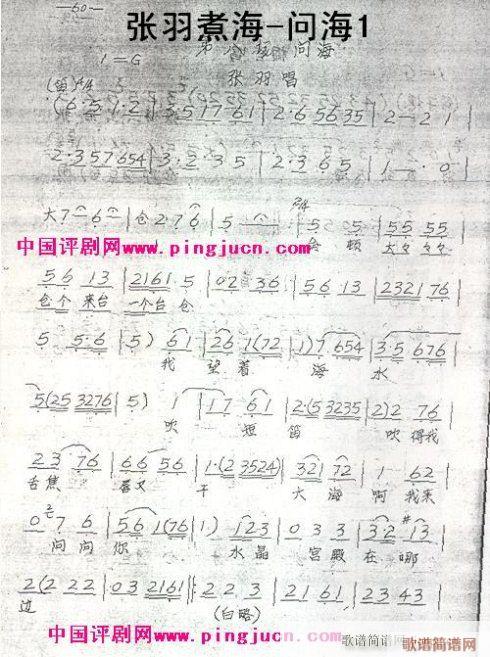 —60—
张羽煮海-问海1
问海
1=G
张羽唱
(笛)4/4
(6·5 1·2 | 3·5 1 7 6 1 | 2·6 5 6 3 5 | 2 — 2 1 |
2·3 5 7 6 5 4 | 3·2 3 5 | 2·3 6 5 | 1 — · 0 |
大 7 — 6 — | 仓 2 7 6 | 5 — — | 2/4 5 5 | 5 5 5 5 |
仓 顿
中国评剧网www.pingjucn.com
5 6 1 3 | 2 1 6 1 5 | 0 2 3 6 | 5 6 1 3 | 2 3 2 1 7 6 |
仓个 来台 一个台 仓
5 5·6 | 5) 6 1 | 2 6 1 (7 2 | 1) 7 6 5 4 | 3 5 6 7 6 |
我 望着 海 水
5 (2 5 3 2 7 6 | 5) 1 | 1 7 6 1 | 2·(5 3 2 3 5 | 2) 2 7 6 |
吹 短 笛 吹得我
2 3 7 6 | 6 6 5 6 | 1·(2 3 5 2 4 | 3 2 1 7 2 | 1 6 2 |
舌焦 唇又 干 大海 啊 我来
0 2 7 6 | 5 6 1 (7 6 | 1) 1 2 3 | 0 3 3 | 3 2 #1 3 |
问问 你 水晶 宫殿 在 哪
2 (2 2 2 | 0 3 2 1 6 1 |: 2 2 3 | 2 1 6 1 | 2 3 4 3 |
边 (白略)
中国评剧网www.pingjucn.com
歌谱简谱网
歌谱简谱网